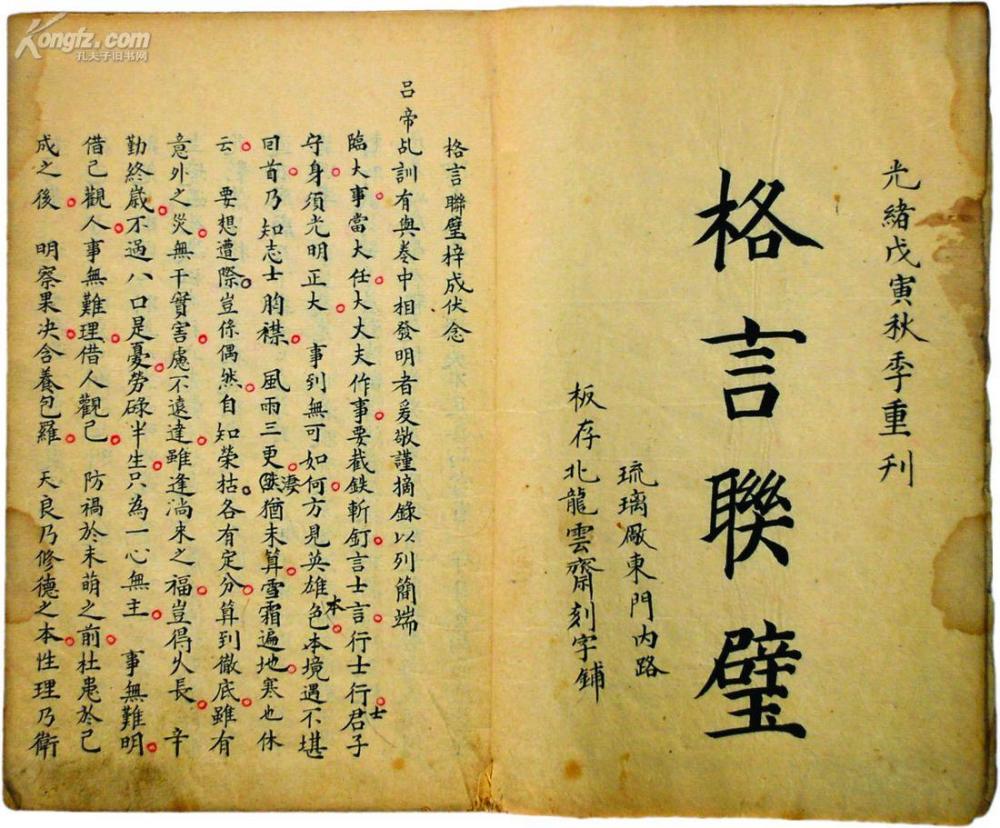 Kongfz.com
孔夫子旧书网
光緒戊寅秋季重刋
格言聯璧
琉璃厰東門内路
板存北龍雲齋刻字鋪
格言聯璧梓成伏念
吕帝乩訓有與卷中相發明者爰敬謹摘錄以列簡端
臨大事當大任大丈夫作事要截鉄斬釘言士言行士行君子
士
守身須光明正大 事到無可如何方見英雄色本境遇不堪
本
回首乃知志士胸襟 風雨三更猶未算雪霜遍地寒也休
凄
云 要想遭際豈係偶然自知榮枯各有定分算到徹底雖有
意外之災無干實害慮不遠達雖逢淌來之福豈得久長 辛
勤終歲不過八口是憂勞碌半生只為一心無主 事無難明
借己觀人事無難理借人觀己 防禍於未萌之前杜患於已
成之後 明察果决含養包羅 天良乃修德之本性理乃衛